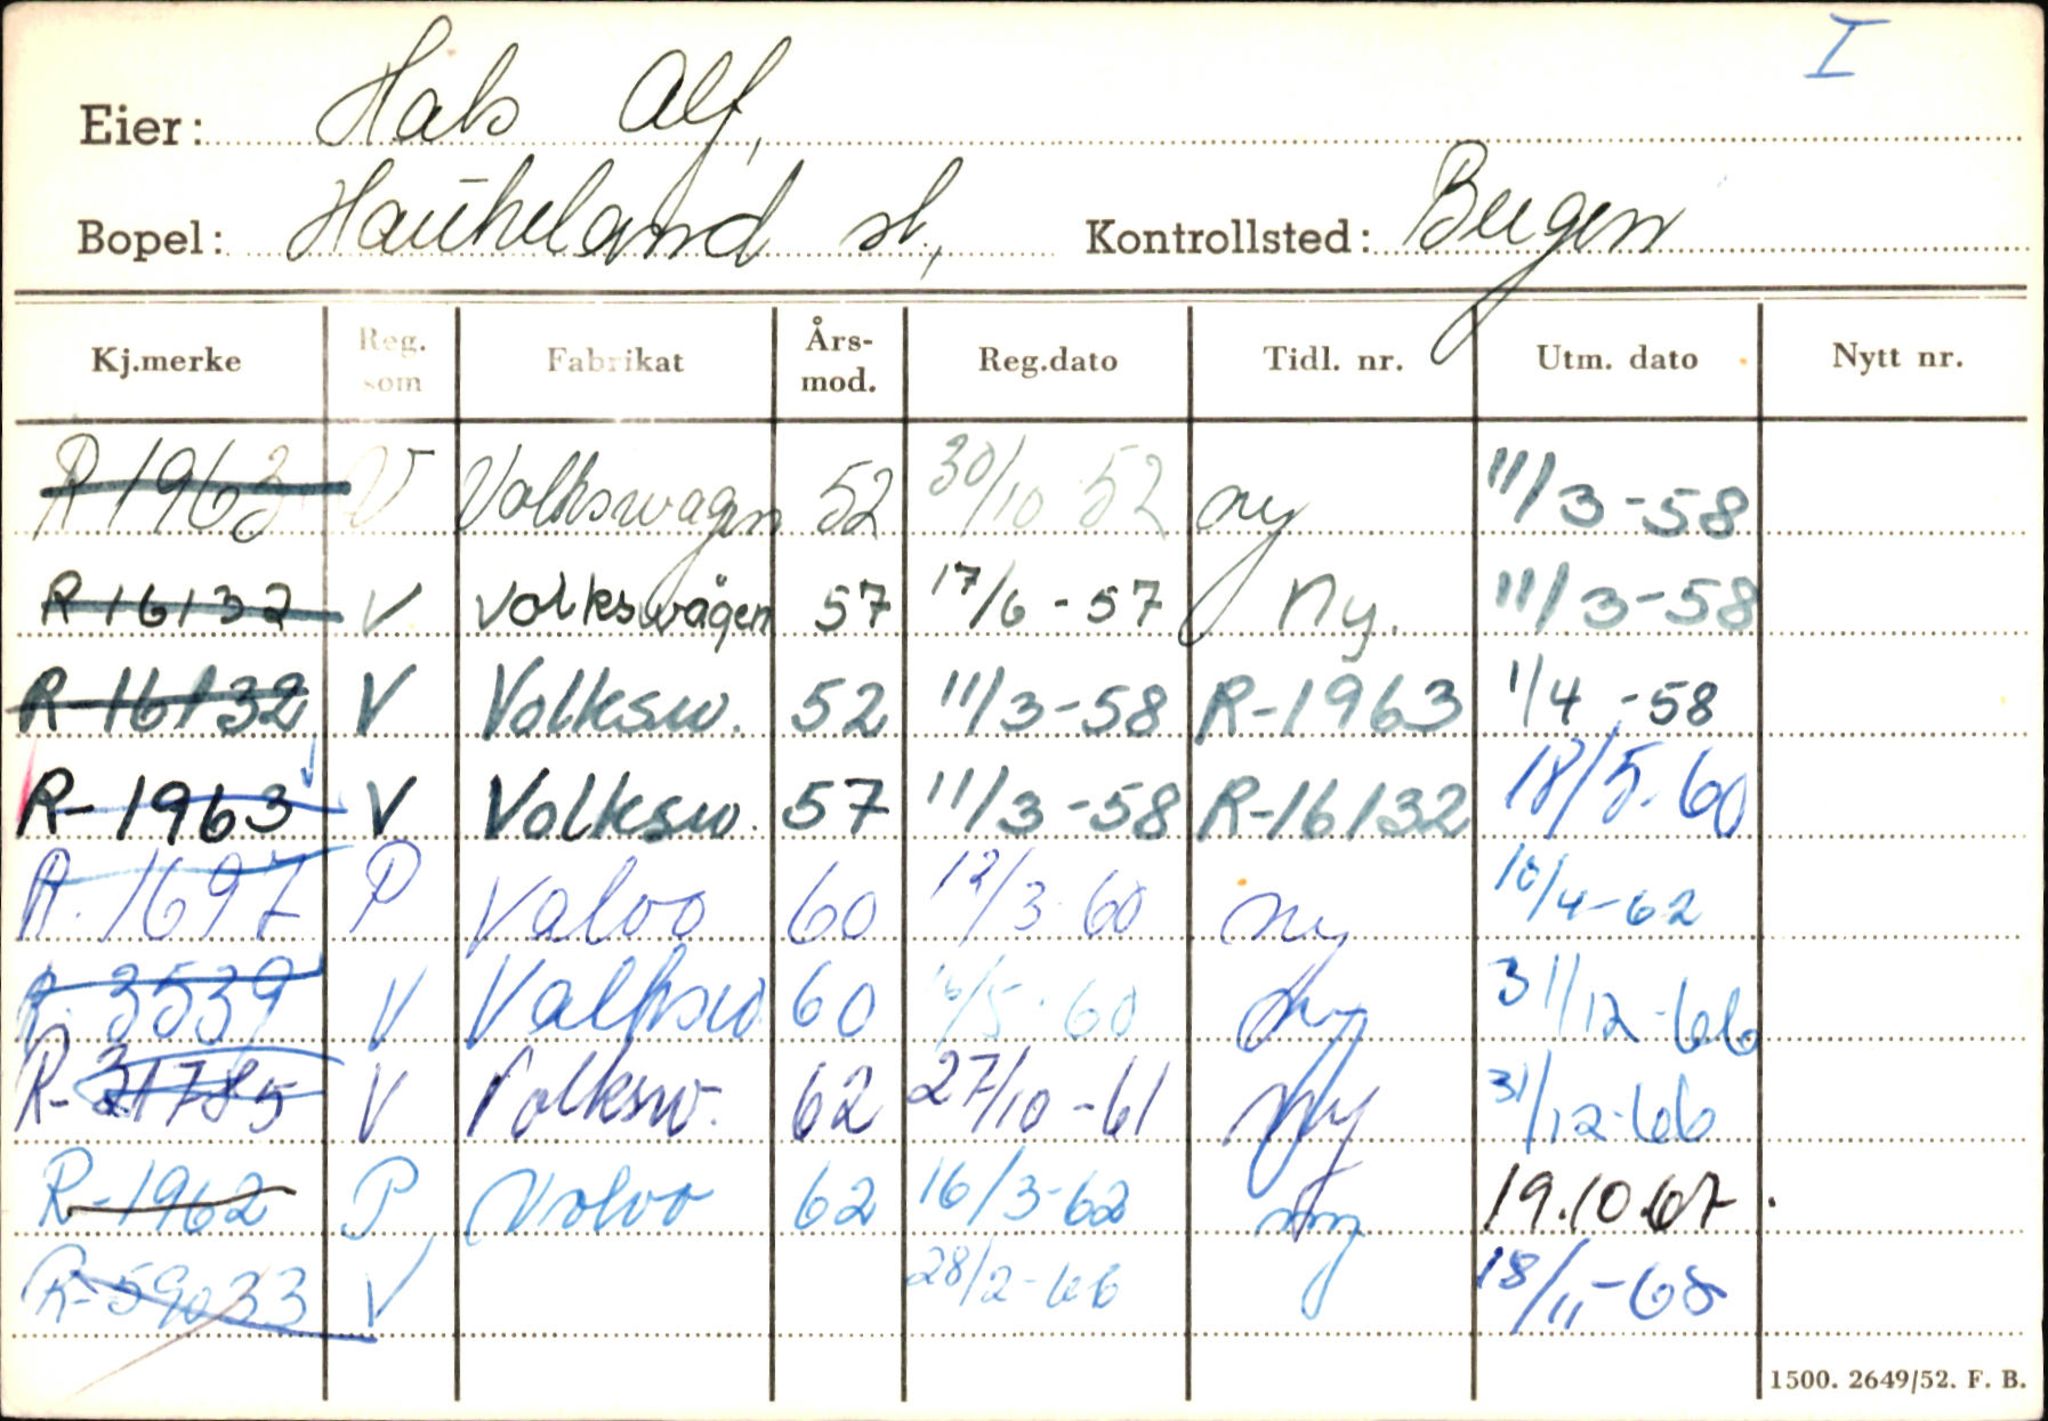 I
Eier: Hals Alf,
Bopel: Haukeland st, Kontrollsted: Bergen
Kj.merke Reg. som Fabrikat Års-mod. Reg.dato Tidl. nr. Utm. dato Nytt nr.
R 1963 V Volkswagen 52 30/10 52 ny 11/3-58
R 16132 V Volkswagen 57 17/6 - 57 Ny. 11/3-58
R-16132 V Volksw. 52 11/3-58 R-1963 1/4 -58
R-1963 V Volksw. 57 11/3-58 R-16132 18/5-60
R. 1697 P Volvo 60 12/3-60 ny 10/4-62
R. 3539 V Volksw. 60 /5-60 ny 31/12-66
R-31785 V Volksw. 62 27/10-61 Ny 31/12-66
R-1962 P Volvo 62 16/3-62 ny 19.10.67.
R-59033 V 28/2-66 18/11-68
1500. 2649/52. F. B.